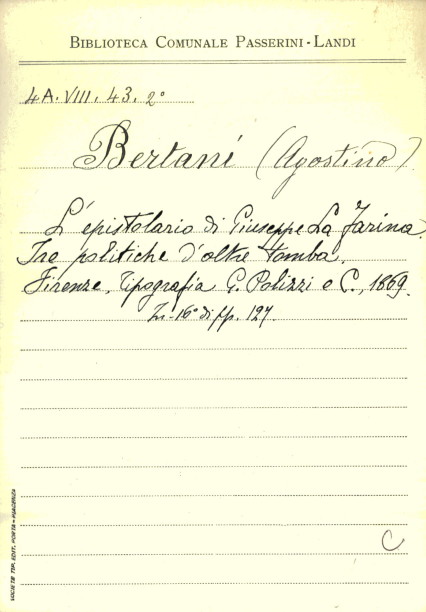 BIBLIOTECA COMUNALE PASSERINI-LANDI
4A. VIII. 43. 2°
Bertani (Agostino)
L'epistolario di Giuseppe La Farina.
Ire politiche d'oltre tomba.
Firenze, Tipografia G. Polizzi e C., 1869.
In-16° di pp. 127.
C
SOCIETÀ TIP. EDIT. PORTA - PIACENZA